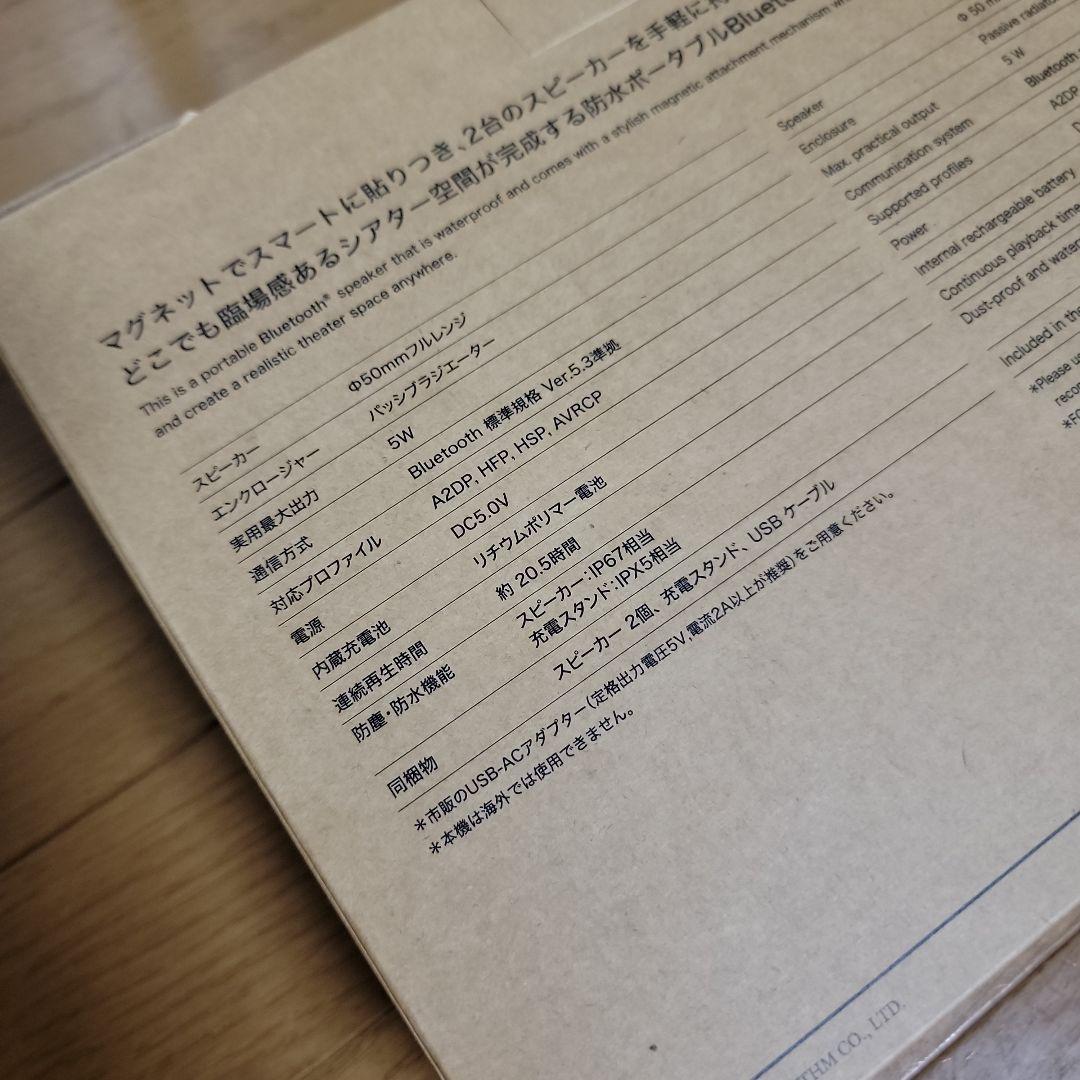 マグネットでスマートに貼りつき、2台のスピーカーを手軽に
どこでも臨場感あるシアター空間が完成する防水ポータブルBluetoo
This is a portable Bluetooth® speaker that is waterproof and comes with a stylish magnetic attachment mechanism
and create a realistic theater space anywhere.
スピーカー Φ50mmフルレンジ
エンクロージャー パッシブラジエーター
実用最大出力 5W
通信方式 Bluetooth 標準規格 Ver.5.3準拠
対応プロファイル A2DP, HFP, HSP, AVRCP
電源 DC5.0V
内蔵充電池 リチウムポリマー電池
連続再生時間 約 20.5時間
防塵・防水機能 スピーカー：IP67相当
充電スタンド：IPX5相当
同梱物 スピーカー 2個、充電スタンド、USB ケーブル
＊市販のUSB-ACアダプター(定格出力電圧5V,電流2A以上が推奨)をご用意ください。
＊本機は海外では使用できません。
Speaker Φ 50 m
Enclosure Passive radiato
Max. practical output 5 W
Communication system Bluetooth
Supported profiles A2DP
Power D
Internal rechargeable battery
Continuous playback time
Dust-proof and water
Included in the
*Please u
reco
THM CO., LTD.